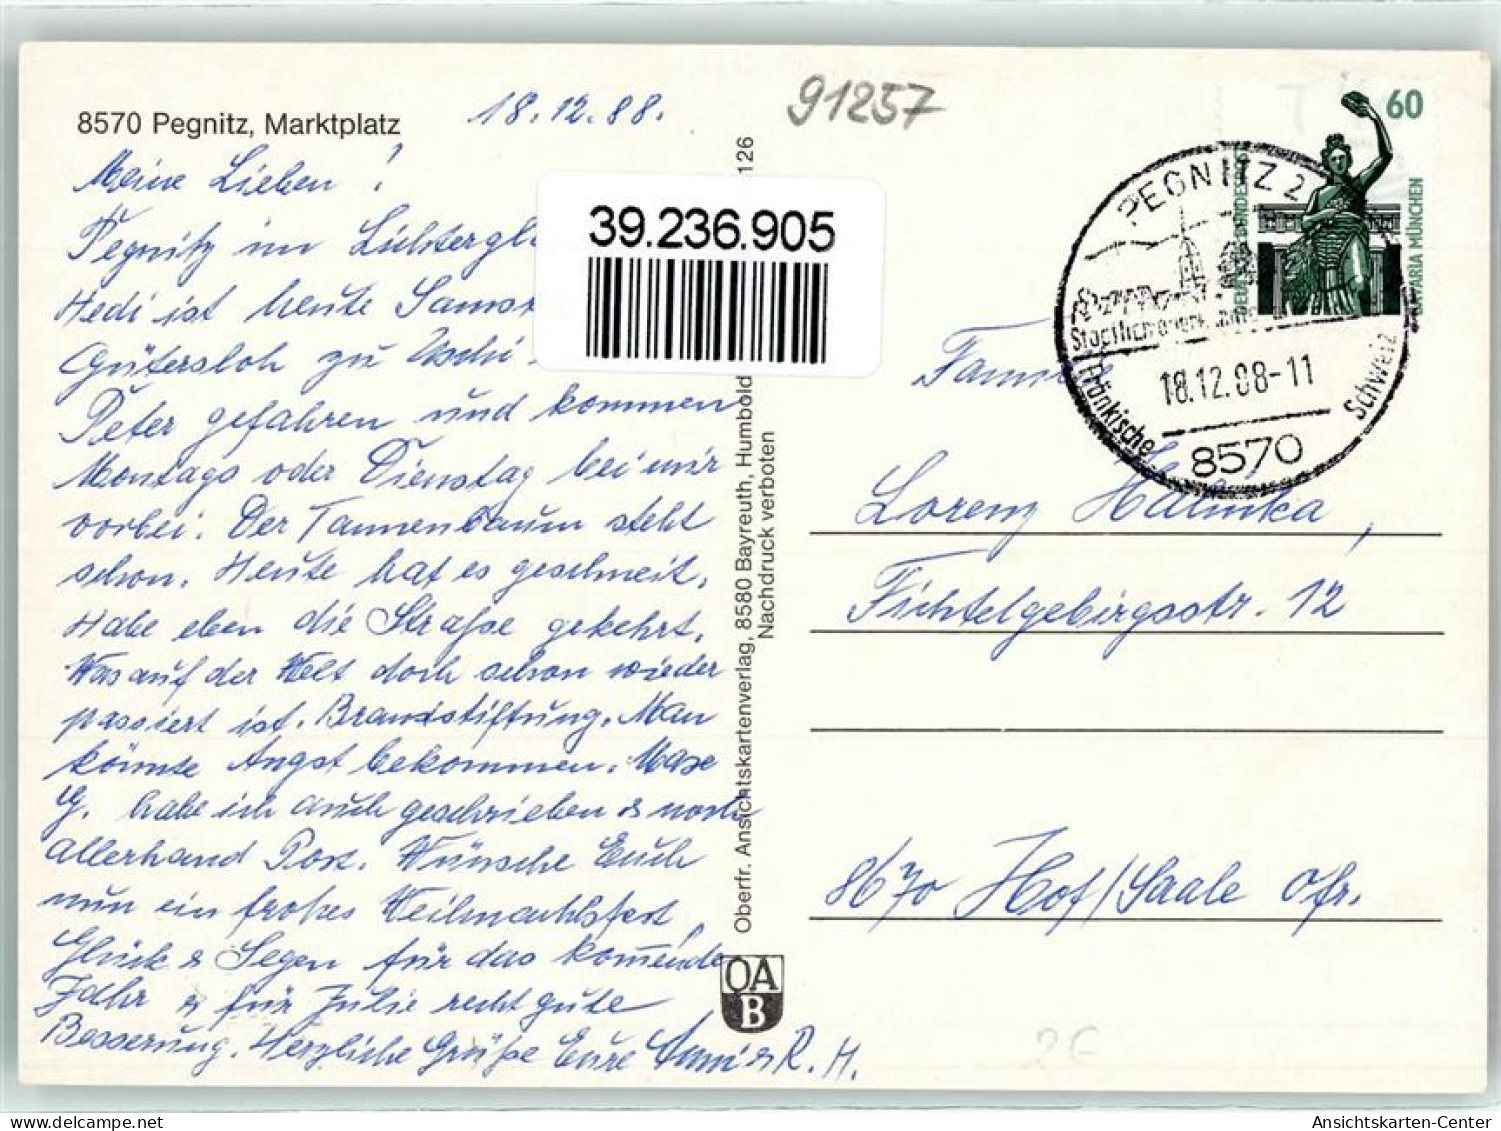 8570 Pegnitz, Marktplatz
18.12.88.
91257
Meine Lieben!
Pegnitz im Lichtergl
Hedi ist heute
Gütersloh zu Uschi
Peter gefahren und kommen
Montags oder Dienstag bei mir
vorbei. Der Tannenbaum steht
schon. Heute hat es geschneit.
Habe eben die Straße gekehrt.
Was auf der Welt doch schon wieder
passiert ist. Brandstiftung. Man
könnte Angst bekommen.
G. habe ich auch geschrieben & noch
allerhand Post. Wünsche Euch
nun ein frohes Weihnachtsfest,
Glück & Segen für das kommende
Jahr & für Julie recht gute
Besserung. Herzliche Grüße Eure & R. H.
39.236.905
126
Oberfr. Ansichtskartenverlag, 8580 Bayreuth, Humbold
Nachdruck verboten
OA
B
60
BAVARIA MÜNCHEN
PEGNITZ 2
18.12.88-11
Fränkische Schweiz
8570
Familie
Lorenz Halinka,
Fichtelgebirgsstr. 12
8670 Hof/Saale Ofr.
2€
oldthing.de
Ansichtskarten-Center